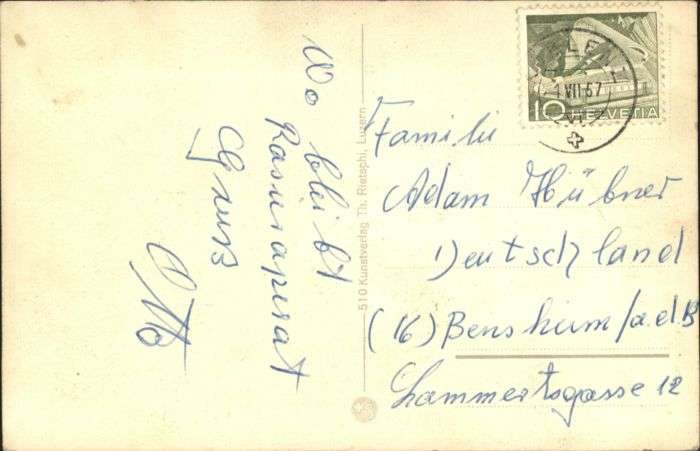 Wo
bleibt
Rasierapperat
Gruss
Otto
510 Kunstverlag Th. Rietschi, Luzern
10 HELVETIA
VII 57
Familie
Adam Hübner
Deutschland
(16) Bensheim/a.d.B
Lammertsgasse 12